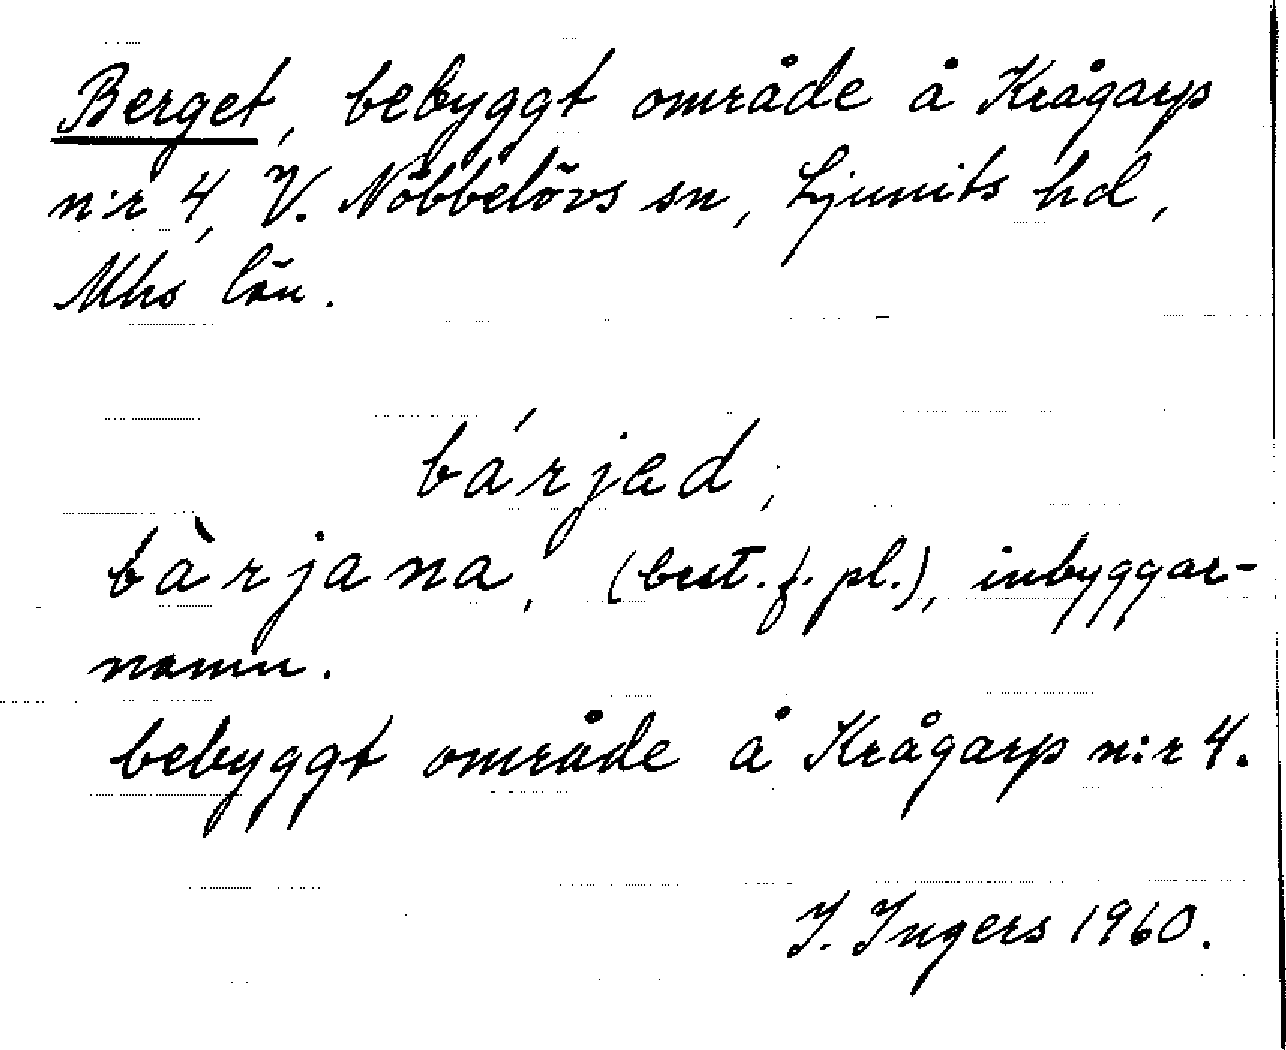 Berget, bebyggt område å Krågarp
n:r 4, V. Nöbbelövs sn, Ljunits hd,
Mhs län.
bárjad,
bàrjana, (best. f. pl.), inbyggar-
namn.
bebyggt område å Krågarp n:r 4.
I. Ingers 1960.